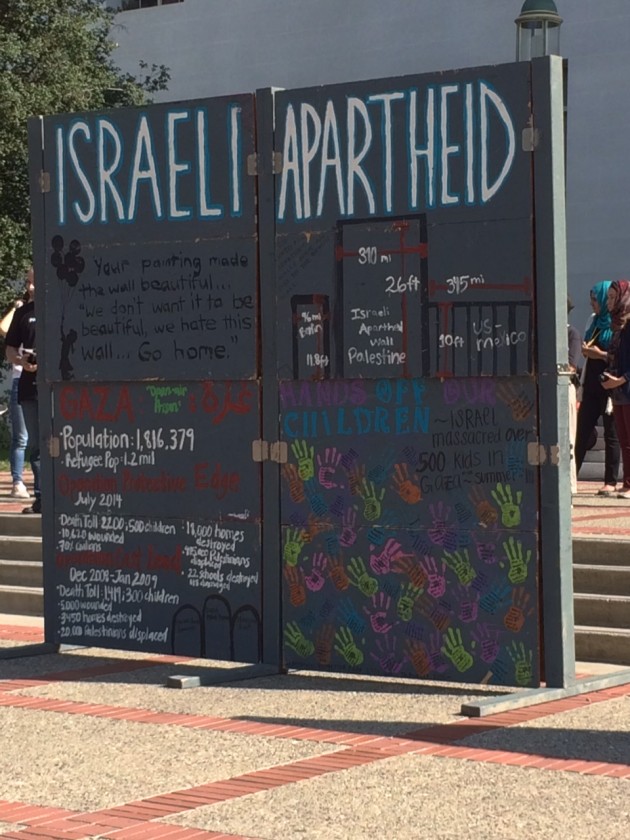 ISRAELI APARTHEID
Your painting made
the wall beautiful...
"We don't want it to be
beautiful, we hate this
wall... Go home."
310 mi
26ft
345 mi
96 mi
Berlin
11.8ft
Israeli
Apartheid
Wall
Palestine
10ft
US-
mexico
GAZA
"Open-air
Prison"
غزة
Population: 1,816,379
Refugee Pop: 1.2 mil
Operation Protective Edge
July 2014
Death Toll 2200, 500 children
10,620 wounded
70% civilians
18,000 homes
destroyed
displaced
22 schools destroyed
Dec 2008-Jan 2009
Death Toll: 1,419, 300 children
5,000 wounded
3,450 homes destroyed
20,000 Palestinians displaced
HANDS OFF OUR
CHILDREN
~ISRAEL
massacred over
500 kids in
Gaza summer